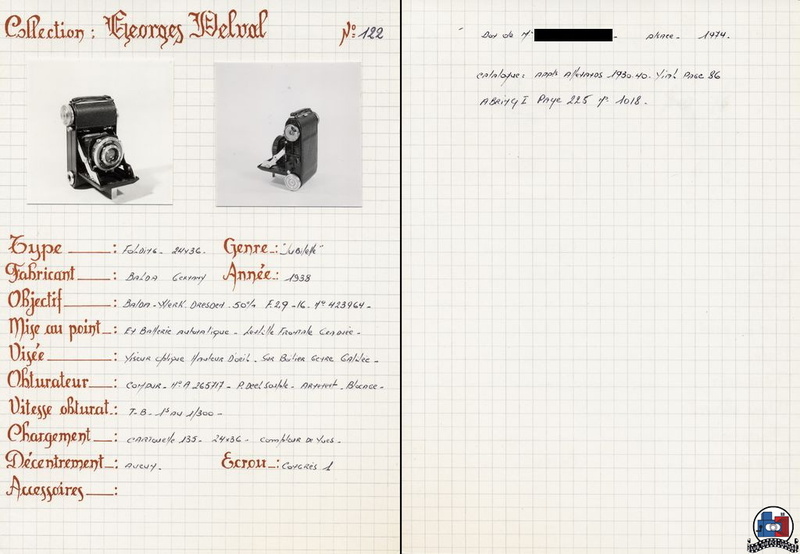 Collection : Georges Delval Nº 122
Type : Folding - 24x36 - Genre : "Jubilette"
Fabricant : BALDA Germany Année : 1938
Objectif : BALDA - WERK. DRESDEN - 50 F. 2,9 - 16. Nº 423964 -
Mise au point : Et Batterie automatique - Lentille Frontale
Visée : Viseur optique - Sur Boîtier Genre Galilée -
Obturateur : COMPUR - Nº A 265717 -
Vitesse obturat. : T. B - 1s au 1/300 -
Chargement : cartouche 135 - 24x36 - compteur de vues -
Décentrement : aucun - Ecrou : Congrès 1
Accessoires :
Don de Mr - 1974 -
Catalogue : Page 86
ABRING I Page 225 nº 1018 -